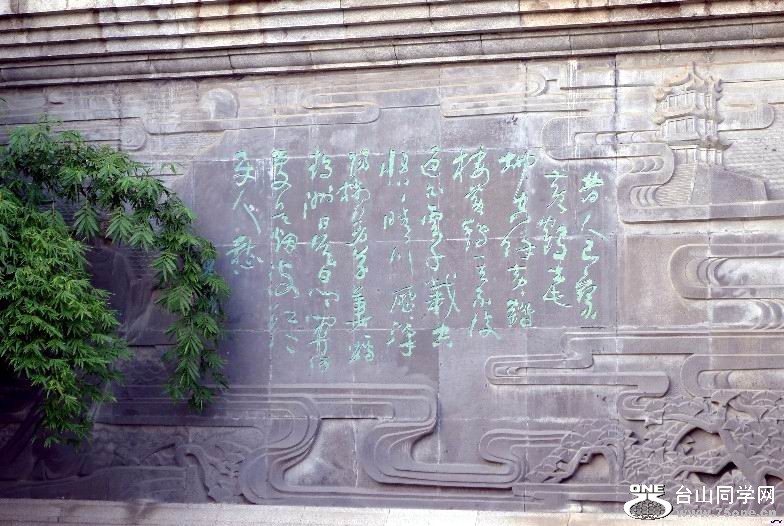 昔人已乘
黄鹤去
此地空餘黄鹤
楼黄鹤一去不復
返白雲千載空
悠悠晴川歷歷漢
陽樹芳草萋萋鹦
鹉洲日暮鄉關何
處是烟波江上
使人愁
ONE 台山同学网
www.75one.cn